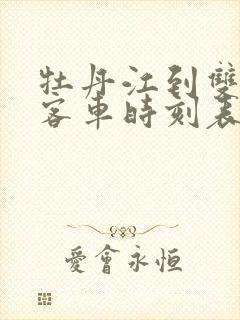 牡丹江到雙
客車時刻表
愛會永恒